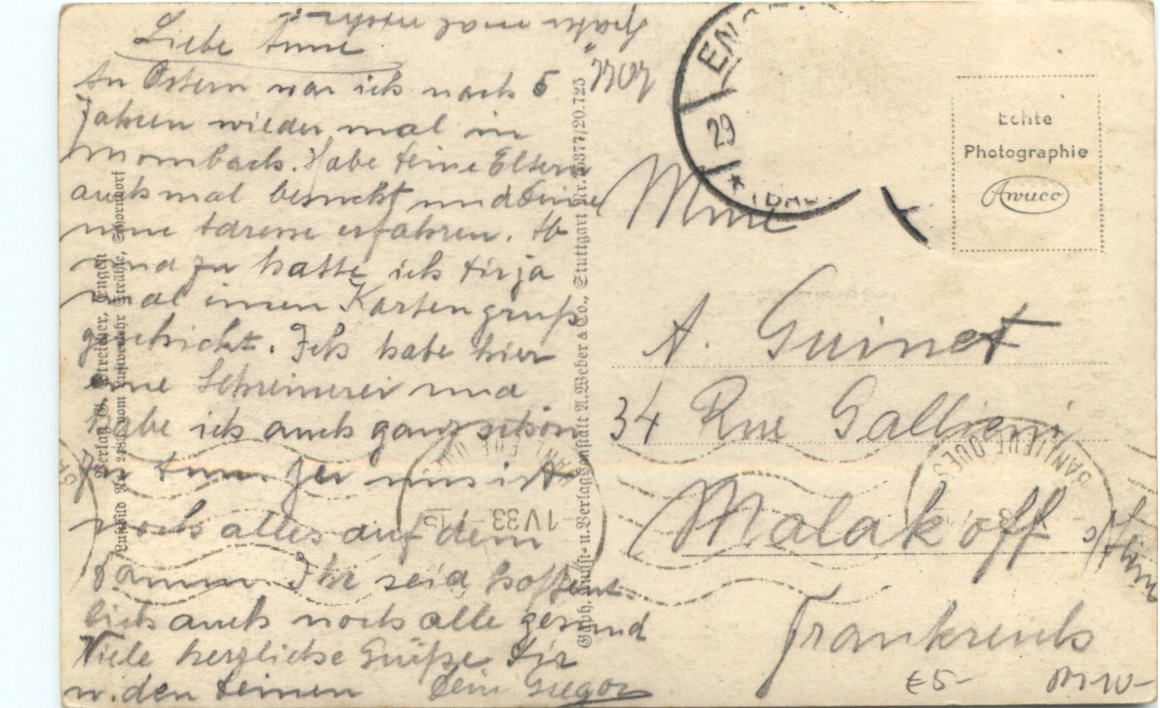 Liebe Anne
An Ostern war ich nach 5
Jahren wieder mal in
Mombach. Habe deine Eltern
auch mal besucht und Deine
neue Adresse erfahren. Ab
und zu hatte ich dir ja
mal einen Kartengruß
geschickt. Ich habe hier
eine Schreinerei und
habe ich auch ganz schön
zu tun. Bei uns ist
noch alles auf dem
Damm. Ihr seid hoffent-
lich auch noch alle gesund
Viele herzliche Grüße Dir
u. den Deinen Dein Gregor
mal
Verlag G. Streicher, Engen
Luftbild Nr. vom Luftverkehr Strähle, Schorndorf
Graph. Kunst- u. Verlagsanstalt A. Weber & Co., Stuttgart Nr. 5377/20.725
29
Echte
Photographie
Awuco
Mme
A. Guinet
34 Rue Gallieni
Malakoff
Frankreich
BANLIEUE OUEST
1 V 33
BANLIEUE OUEST
€5-
10-